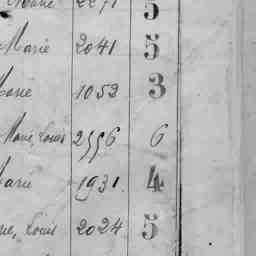 Marie 2271 5
Marie 2041 5
Marie 1053 3
Marie, Louis 2556 6
Marie 1931 4
Louis 2024 5